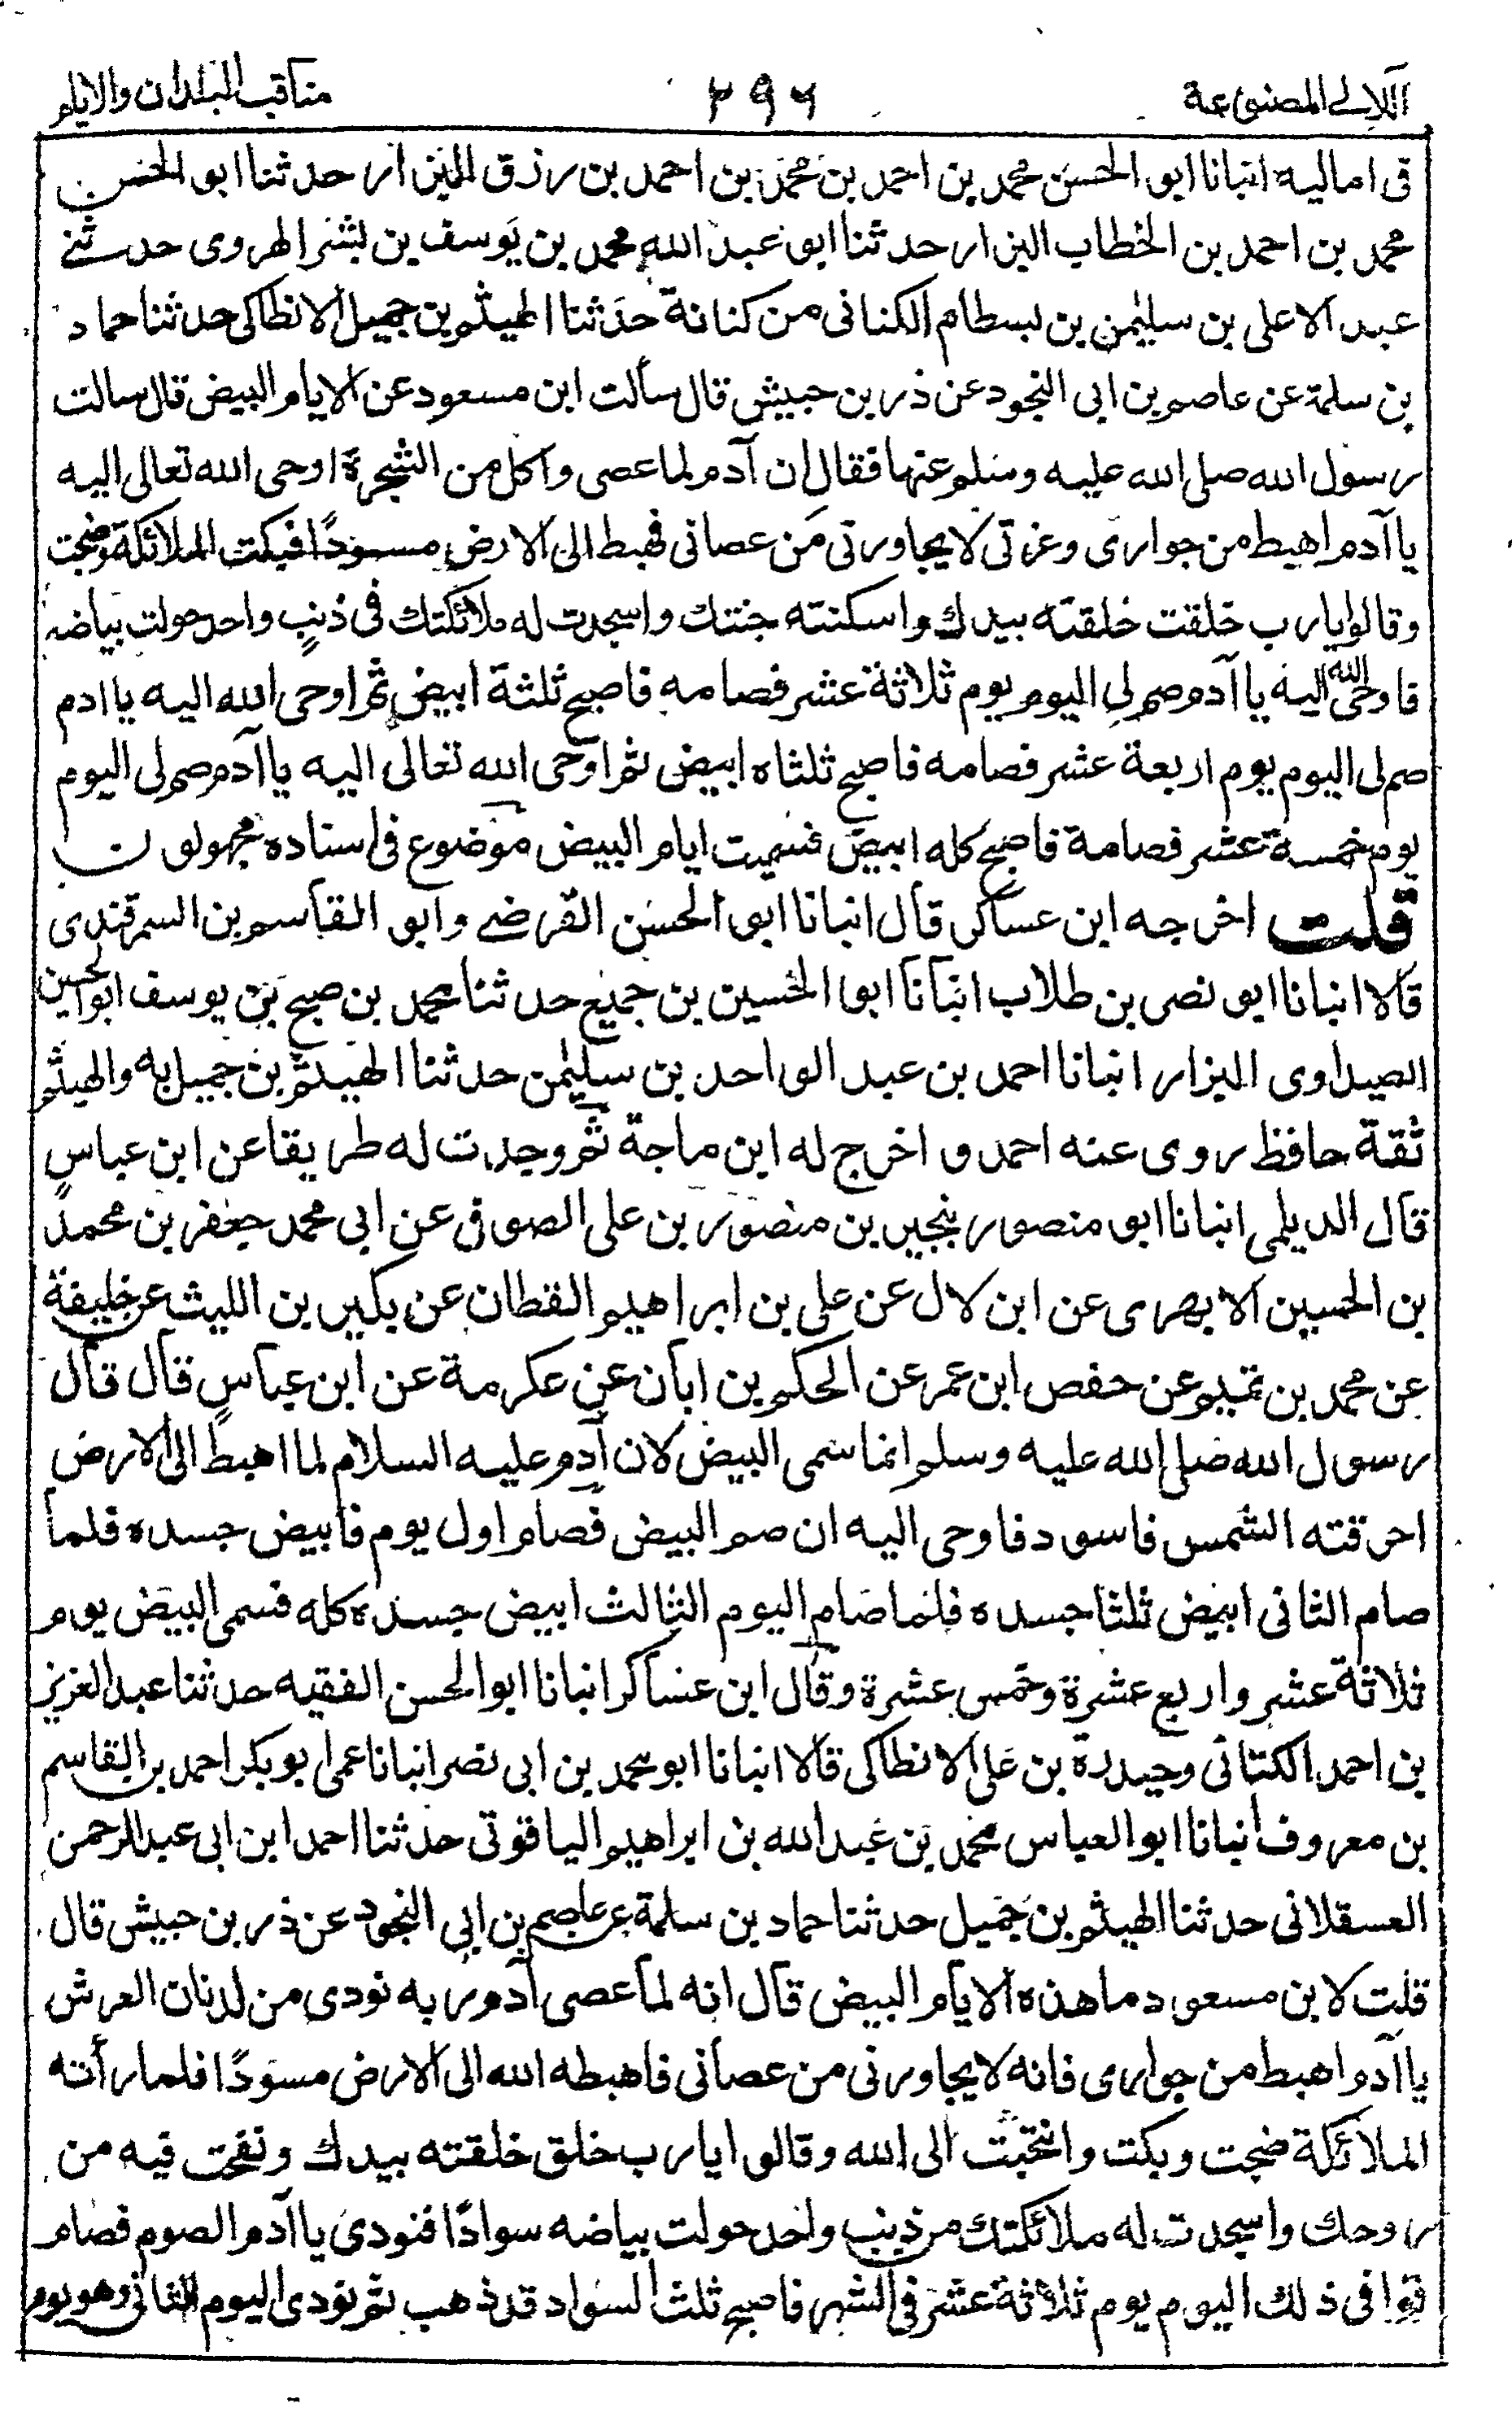 اللالي المصنوعة
٢٩٦
مناقب البلدان والايام
فى اماليه انبانا ابو الحسن محمد بن احمد بن محمد بن احمد بن رزق البزار حدثنا ابو الحسن
محمد بن احمد بن الخطاب البزار حدثنا ابو عبد الله محمد بن يوسف بن بشر الهروى حدثنے
عبد الاعلى بن سليمن بن بسطام الكنانى من كنانة حدثنا الهيثم بن جميل الانطاكى حدثنا حماد
بن سلمة عن عاصم بن ابى النجود عن ذر بن حبيش قال سألت ابن مسعود عن الايام البيض قال سالت
رسول الله صلى الله عليه وسلم عنها فقال ان آدم لما عصى واكل من الشجرة اوحى الله تعالى اليه
يا آدم اهبط من جوارى وعزتى لا يجاورنى من عصانى فهبط الى الارض مسودًا فبكت الملائكة وضجت
وقالوا يا رب خلقت خلقته بيدك واسكنته جنتك واسجدت له ملائكتك فى ذنبٍ واحد حولت بياضه
فاوحى الله اليه يا آدم صم لى اليوم يوم ثلاثة عشر فصامه فاصبح ثلثة ابيض ثم اوحى الله اليه يا ادم
صم لى اليوم يوم اربعة عشر فصامه فاصبح ثلثاه ابيض ثم اوحى الله تعالى اليه يا آدم صم لى اليوم
يوم خمسة عشر فصامة فاصبح كله ابيض فسميت ايام البيض موضوع فى اسناده مجهولون
قلت اخرجه ابن عساكر قال انبانا ابو الحسن الفرضے وابو القاسم بن السمرقندى
قالا انبانا ابو نصر بن طلاب انبانا ابو الحسين بن جميع حدثنا محمد بن صبح بن يوسف ابو الحسين
الصيداوى البزار انبانا احمد بن عبد الواحد بن سليمن حدثنا الهيثم بن جميل به والهيثم
ثقة حافظ روى عنه احمد و اخرج له ابن ماجة ثم وجدت له طريقا عن ابن عباسٍ
قال الديلمى انبانا ابو منصور بنجير بن منصور بن على الصوفى عن ابى محمد جعفر بن محمد
بن الحسين الابهرى عن ابن لال عن على بن ابراهيم القطان عن بكير بن الليث عن خليفة
عن محمد بن تميم عن حفص ابن عمر عن الحكم بن ابان عن عكرمة عن ابن عباسٍ قال قال
رسول الله صلى الله عليه وسلم انما سمى البيض لان آدم عليه السلام لما اهبط الى الارض
احرقته الشمس فاسود فاوحى اليه ان صم البيض فصام اول يوم فابيض جسده فلما
صام الثانى ابيض ثلثا جسده فلما صام اليوم الثالث ابيض جسده كله فسمى البيض يوم
ثلاثة عشر و اربع عشرة وخمس عشرة وقال ابن عساكر انبانا ابو الحسن الفقيه حدثنا عبد العزيز
بن احمد الكتانى وحيدرة بن على الانطاكى قالا انبانا ابو محمد بن ابى نصر انبانا عمى ابو بكر احمد بن القاسم
بن معروف انبانا ابو العباس محمد بن عبد الله بن ابراهيم الياقوتى حدثنا احمد ابن ابى عبد الرحمن
العسقلانى حدثنا الهيثم بن جميل حدثنا حماد بن سلمة عن عاصم بن ابى النجود عن ذر بن حبيش قال
قلت لابن مسعود ما هذه الايام البيض قال انه لما عصى آدم ربه نودى من لدنان العرش
يا آدم اهبط من جوارى فانه لا يجاورنى من عصانى فاهبطه الله الى الارض مسودًا فلما رأته
الملائكة ضجت وبكت وانتحبت الى الله وقالوا يا رب خلق خلقته بيدك ونفخت فيه من
روحك واسجدت له ملائكتك من ذنب واحد حولت بياضه سوادًا فنودى يا آدم الصوم فصام
فوافى ذلك اليوم يوم ثلاثة عشر فى الشهر فاصبح ثلث السواد قد ذهب ثم نودى اليوم الثانى وهو يوم